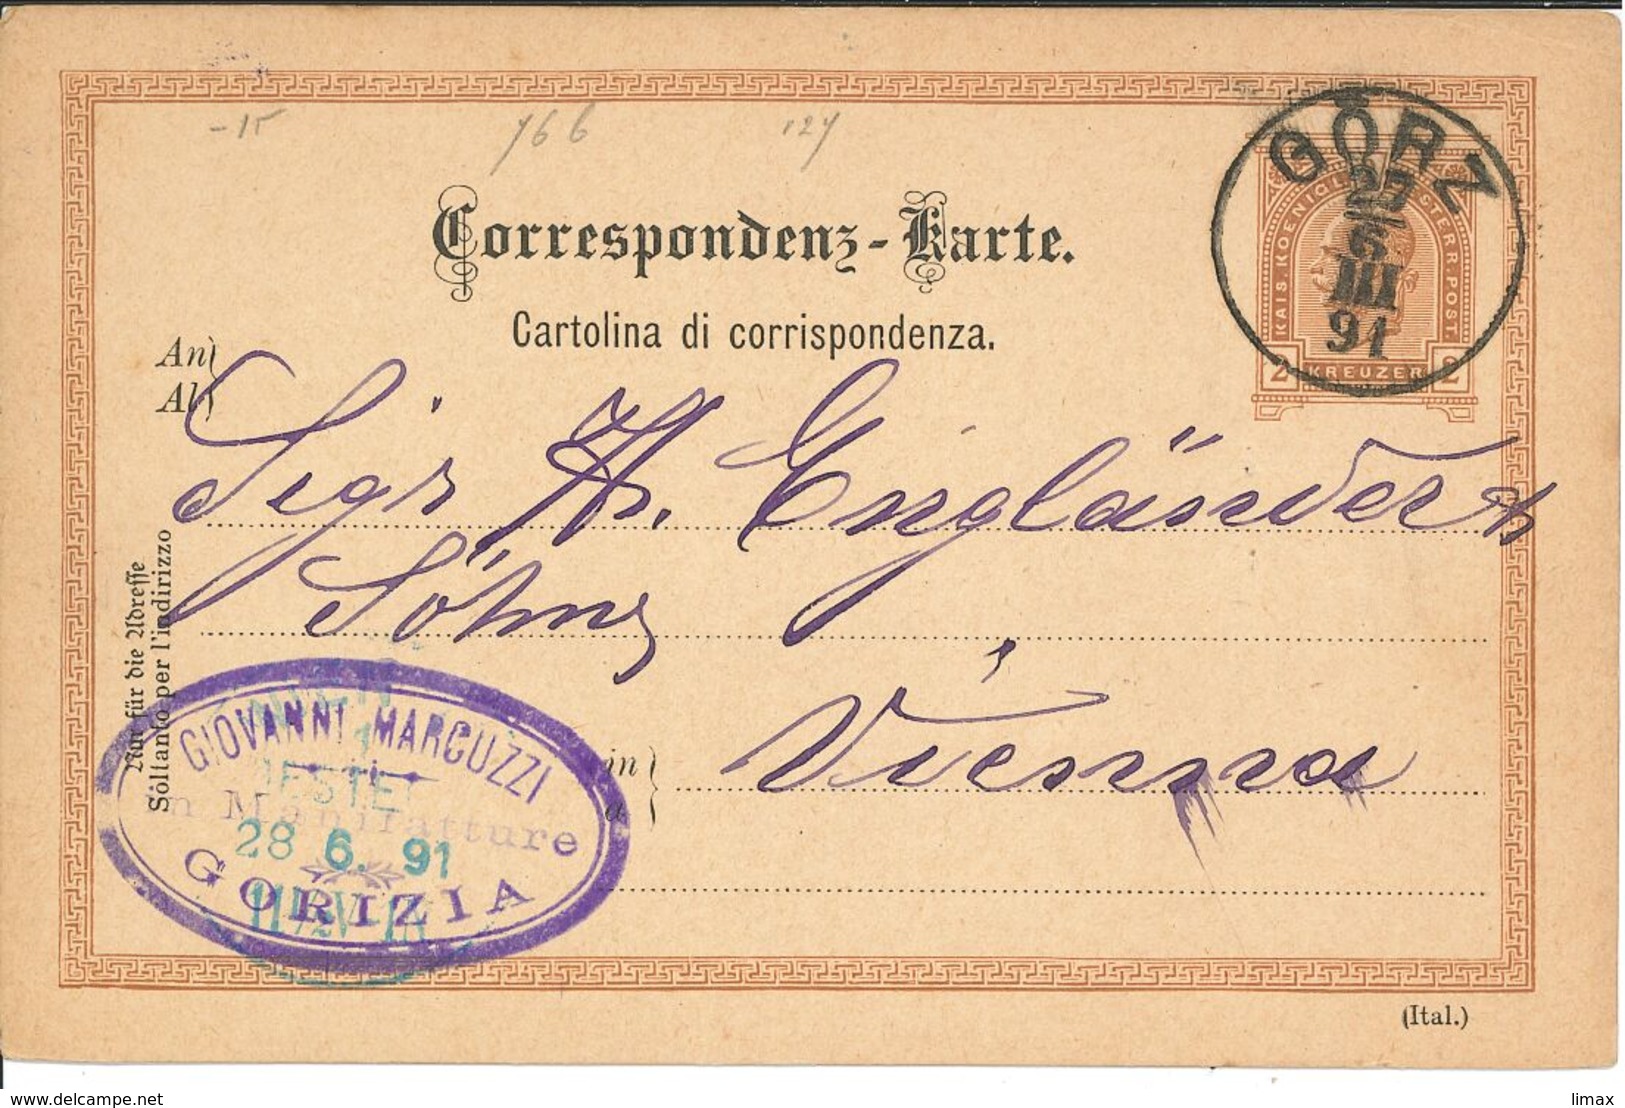 -15 166 127
GÖRZ
27
6
III
91
KAIS. KOENIGL. OESTERR. POST
2 KREUZER 2
Correspondenz-Karte.
Cartolina di corrispondenza.
An
Al
Sigr A. Engländer &
Söhne
in
a
Vienna
Nur für die Adresse
Soltanto per l'indirizzo
GIOVANNI MARCUZZI
in Manifatture
GORIZIA
WIEN
1
BESTELLT
28 6. 91
11½V
(Ital.)
limax
www.delcampe.net